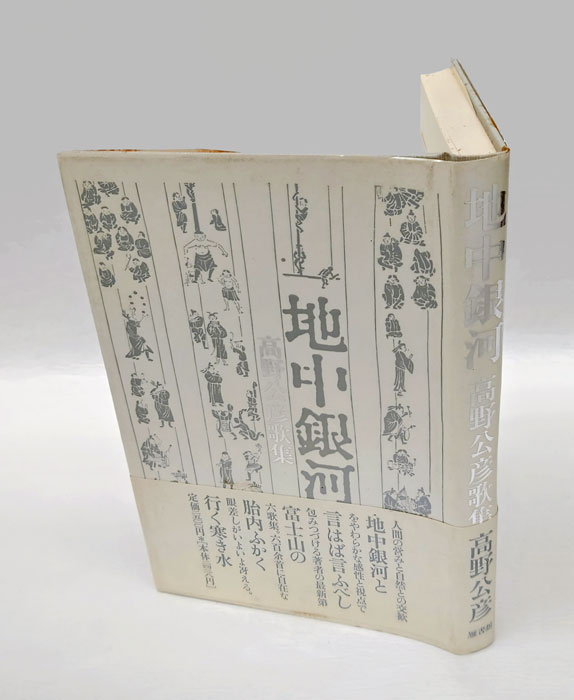 地中銀河
高野公彦歌集
地中銀河と
言はば言ふべし
富士山の
胎内ふかく
行く寒き水
人間の営みと自然との交歓
をやわらかな感性と視点で
包みつづける著者の最新第
六歌集。六百余首に自在な
眼差しがいよいよ冴える。
地中銀河 高野公彦歌集
高野公彦
雁書館